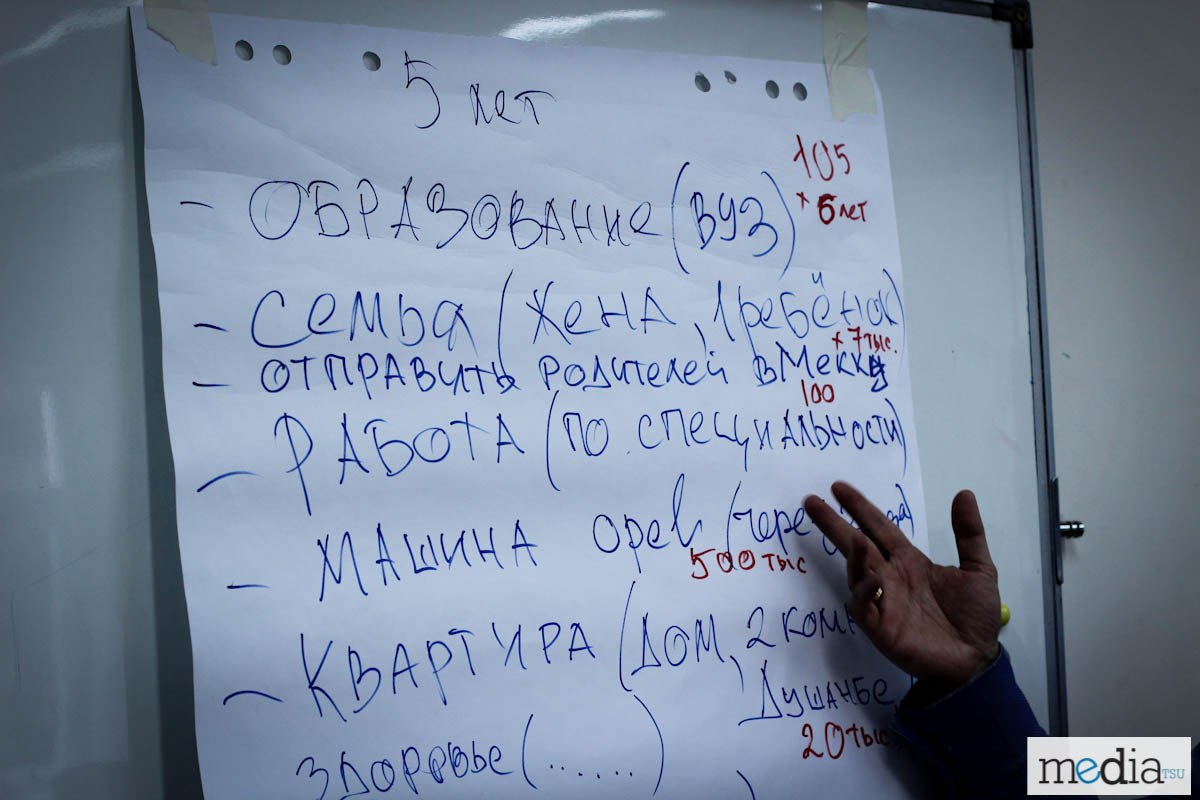 5 лет
105
- ОБРАЗОВАНИе (ВУЗ)
× 6 лет
- Семья (Жена, 1 ребёнок)
× 7 тыс.
- отправить родителей в Мекку
100
- РАБОТА (по специальности)
- МАШИНА Opel
500 тыс
- КВАРТИРА (ДОМ, 2
Душанбе
20 тыс
Здоровье (......)
mediaTSU